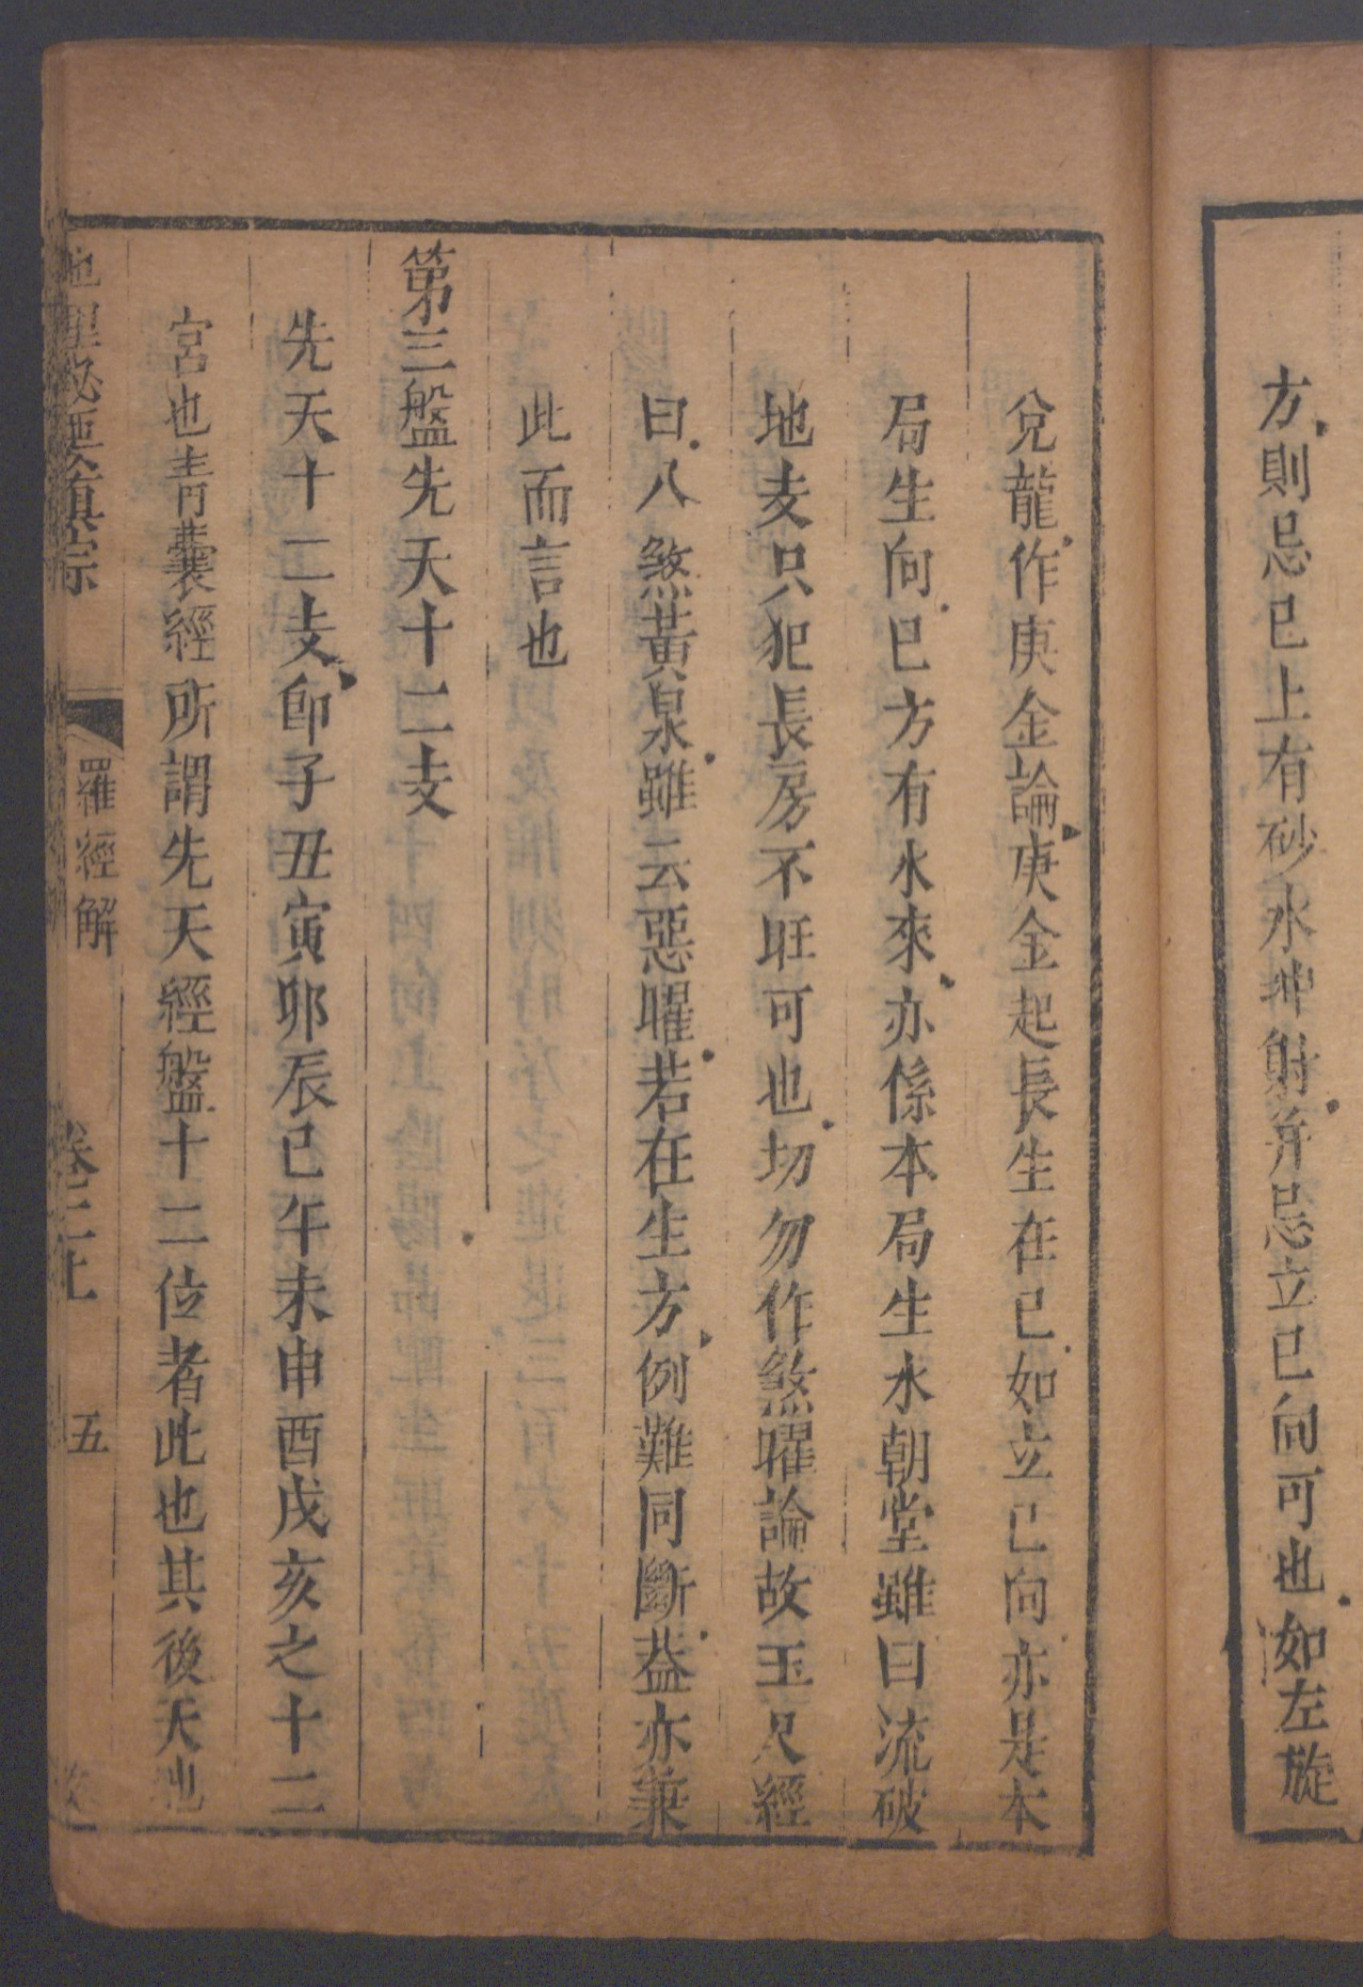 方則忌巳上有砂水冲射并忌立巳向可也如左旋
兌龍作庚金論庚金起長生在巳如立巳向亦是本
局生向巳方有水來亦係本局生水朝堂雖曰流破
地支只犯長房不旺可也切勿作煞曜論故玉尺經
曰八煞黃泉雖云惡曜若在生方例難同斷益亦兼
此而言也
第三盤先天十二支
先天十二支即子丑寅卯辰巳午未申酉戌亥之十二
宮也青囊經所謂先天經盤十二位者此也其後天也
地理秘要眞宗 羅經解 卷二上 五